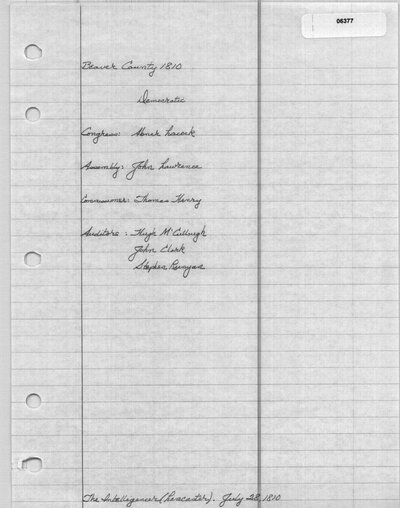 06377
Beaver County 1810
Democratic
Congress: Abner Lacock
Assembly: John Lawrence
Commissioner: Thomas Henry
Auditors: Hugh McCullough
John Clark
Stephen Runyan
The Intelligencer (Lancaster). July 28, 1810